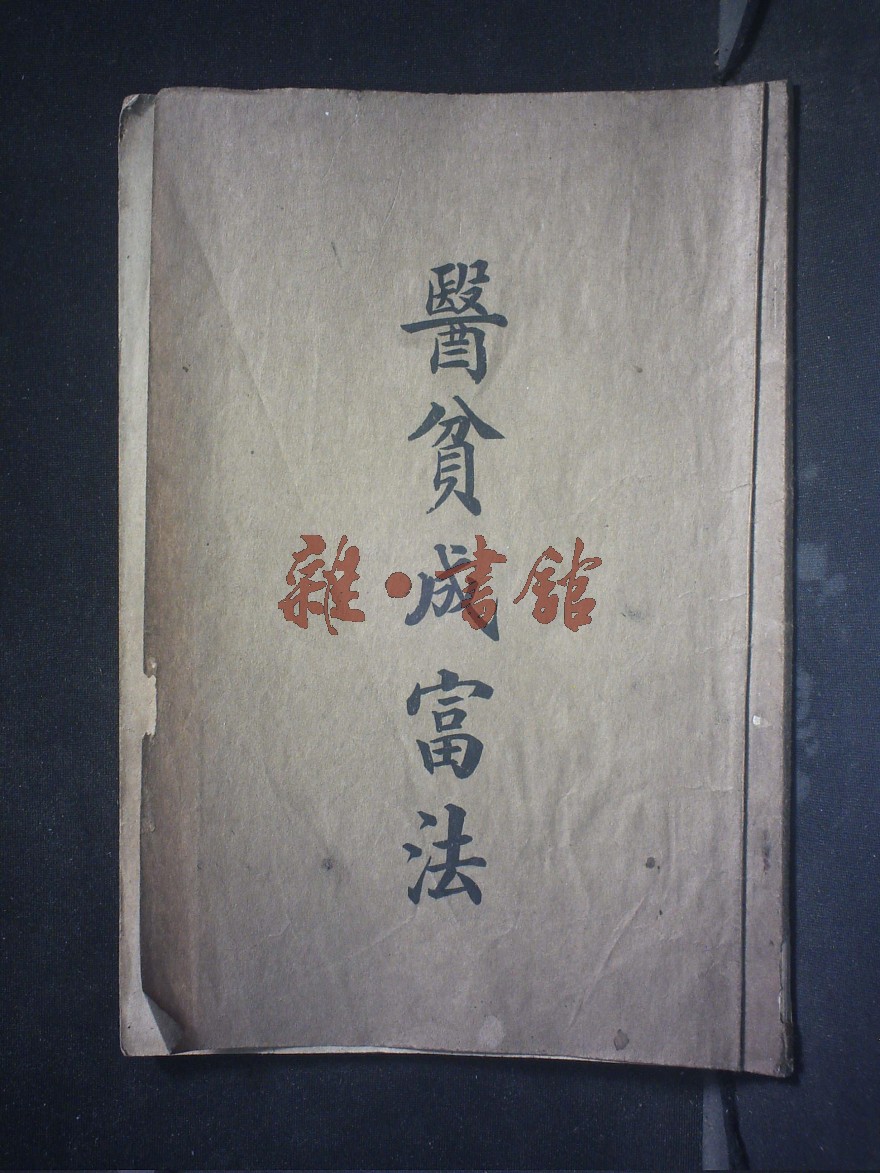 醫貧成富法
雜·書館